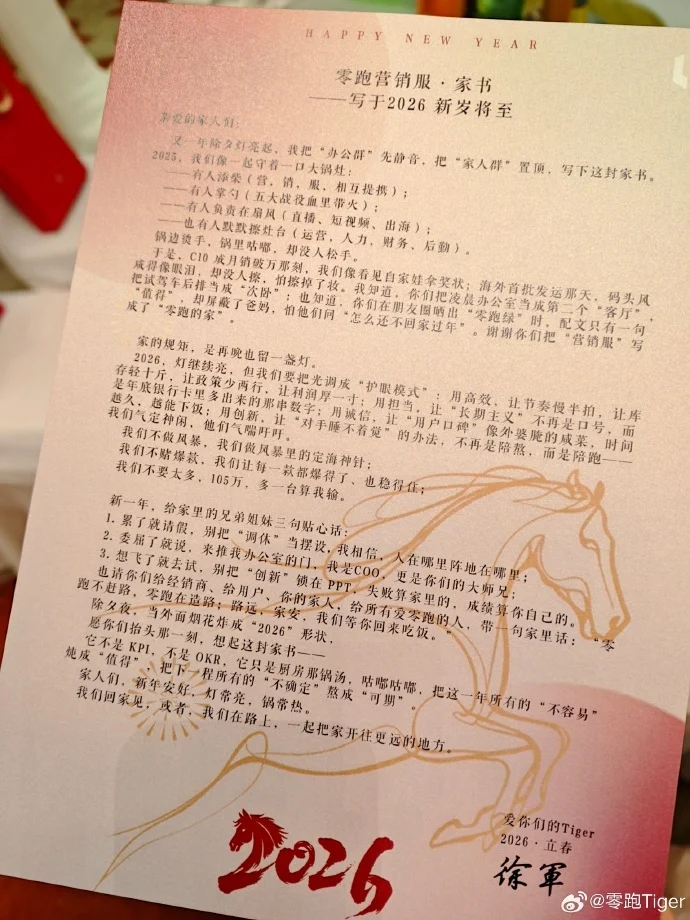 HAPPY NEW YEAR
零跑营销服·家书
——写于2026 新岁将至
亲爱的家人们:
又一年除夕灯亮起,我把“办公群”先静音,把“家人群”置顶,写下这封家书。
2025,我们像一起守着一口大锅灶:
——有人添柴(营,销,服,相互提携);
——有人掌勺(五大战役血里带火);
——有人负责在扇风(直播、短视频、出海);
——也有人默默擦灶台(运营,人力,财务、后勤)。
锅边烫手,锅里咕嘟,却没人松手。
于是,C10 成月销破万那刻,我们像看见自家娃拿奖状;海外首批发运那天,码头风
咸得像眼泪,却没人擦,怕擦掉了妆。我知道,你们把凌晨办公室当成第二个“客厅”,
把试驾车后排当成“次卧”;也知道,你们在朋友圈晒出“零跑绿”时,配文只有一句
“值得”,却屏蔽了爸妈,怕他们问“怎么还不回家过年”。谢谢你们把“营销服”写
成了“零跑的家”。
家的规矩,是再晚也留一盏灯。
2026,灯继续亮,但我们要把光调成“护眼模式”:用高效,让节奏慢半拍,让库
存轻十斤,让政策少两行,让利润厚一寸;用担当,让“长期主义”不再是口号,而
是年底银行卡里多出来的那串数字;用诚信,让“用户口碑”像外婆腌的咸菜,时间
越久,越能下饭;用创新,让“对手睡不着觉”的办法,不再是陪熬,而是陪跑——
我们气定神闲,他们气喘吁吁。
我们不做风暴,我们做风暴里的定海神针;
我们不赌爆款,我们让每一款都爆得了、也稳得住;
我们不要太多,105万,多一台算我输。
新一年,给家里的兄弟姐妹三句贴心话:
1.累了就请假,别把“调休”当摆设,我相信,人在哪里阵地在哪里;
2.委屈了就说,来推我办公室的门,我是COO,更是你们的大师兄;
3.想飞了就去试,别把“创新”锁在 PPT,失败算家里的,成绩算你自己的。
也请你们给经销商、给用户、你的家人,给所有爱零跑的人,带一句家里话:“零
跑不赶路,零跑在造路;路远,家安,我们等你回来吃饭。”
除夕夜,当外面烟花炸成“2026”形状,
愿你们抬头那一刻,想起这封家书——
它不是 KPI,不是 OKR,它只是厨房那锅汤,咕嘟咕嘟,把这一年所有的“不容易”
炖成“值得”,把下一程所有的“不确定”熬成“可期”。
家人们,新年安好,灯常亮,锅常热。
我们回家见,或者,我们在路上,一起把家开往更远的地方。
爱你们的Tiger
2026·立春
徐軍
2026
@零跑Tiger